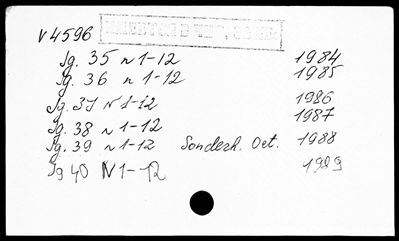 V 4596
Jg. 35 n 1-12 1984
Jg. 36 n 1-12 1985
Jg. 37 N 1-12 1986
Jg. 38 n 1-12 1987
Jg. 39 n 1-12 Sonderh. Oct. 1988
Jg 40 N 1-12 1989